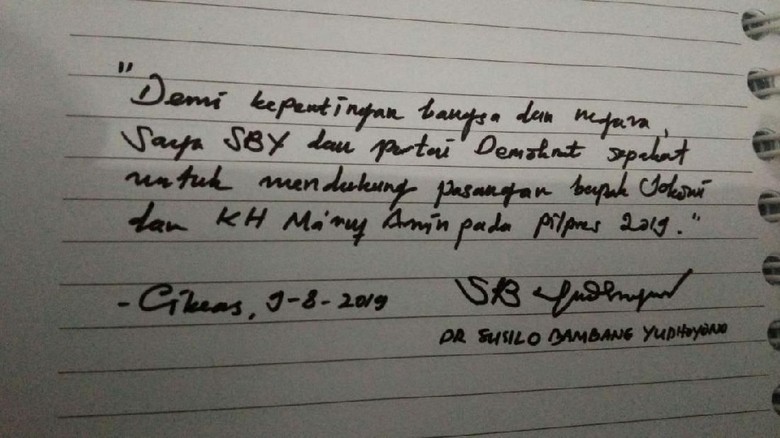 "Demi kepentingan bangsa dan negara,
Saya SBY dan partai Demokrat sepakat
untuk mendukung pasangan bapak Jokowi
dan KH Ma'ruf Amin pada pilpres 2019."
- Cikeas, 9-8-2019 SB Yudhoyono
DR SUSILO BAMBANG YUDHOYONO